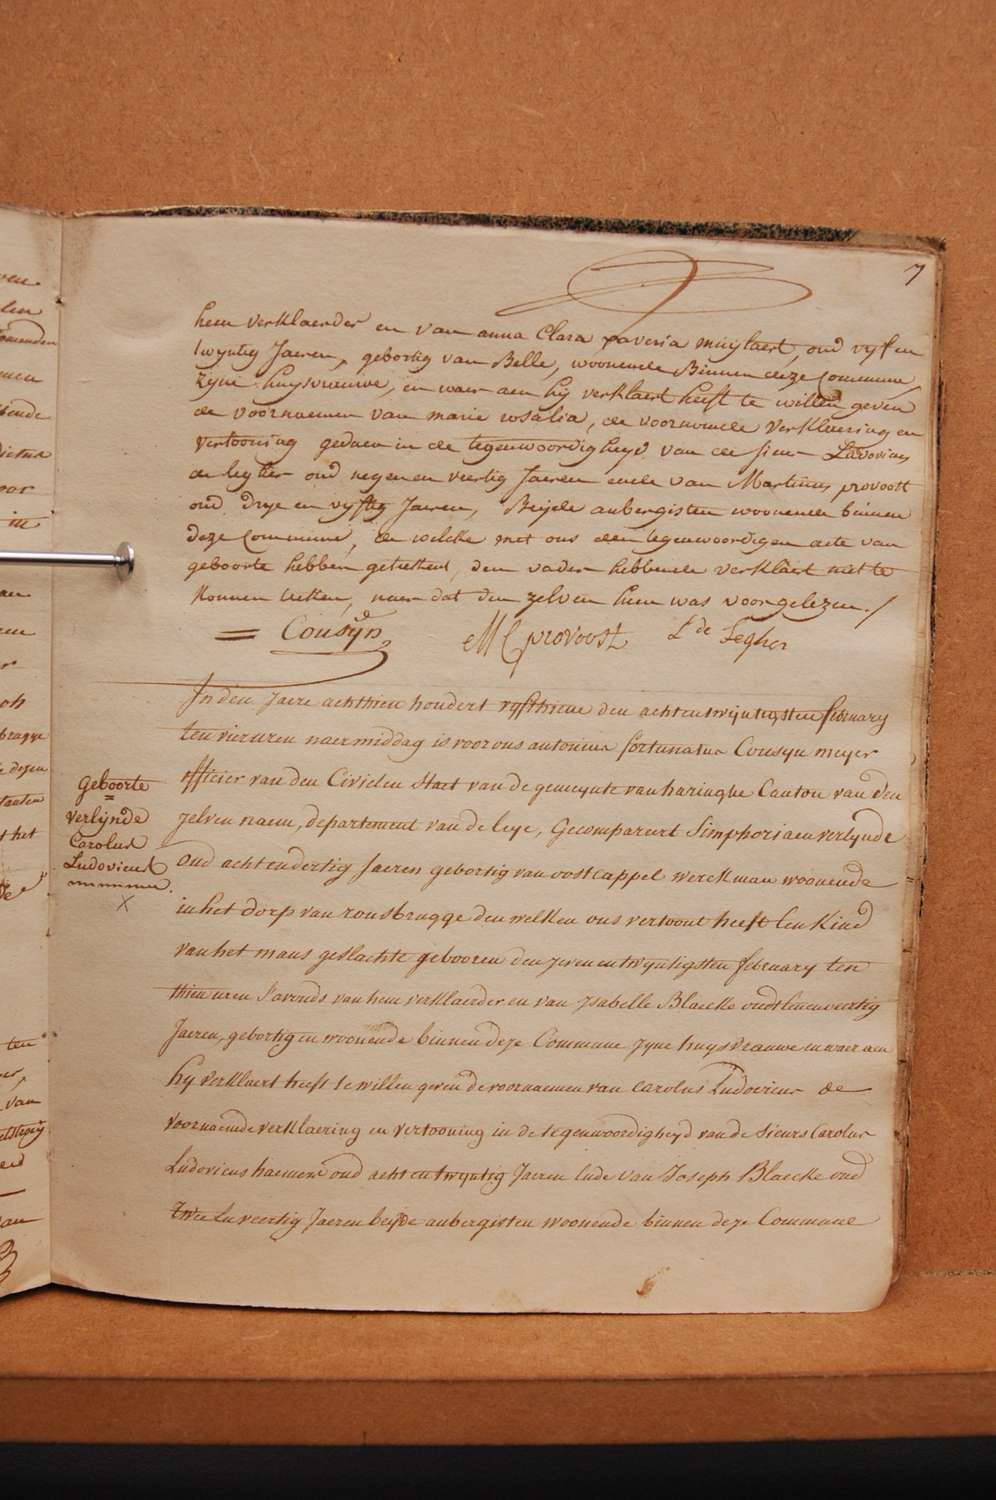 7
hem verklaerder en van anna Clara xaveria muylaert, oud vyf en
twyntig Jaeren, gebortig van Belle, woonende Binnen deze commune,
Zyne huysvrauwe, en waer aen hy verklaert heeft te willen geven
de voornaemen van marie rosalia, de voornoemde verklaering en
vertooning gedaen in de tegenwoordigheyd van de sieurs Ludovicus
de leyher oud negen en veertig Jaeren ende van Martinus provoost
oud drye en vyftig Jaeren, Beijde aubergisten woonende binnen
deze Commune, de welke met ons deen tegenwoordigen acte van
geboorte hebben geteekent, den vader hebbende verklaert niet te
konnen teeken, naer dat den zelven hem was voorgelezen./
= Cousyn M C provoost L de
In den Jaere achthien hondert vyfthiene den achtentwyntigsten february
ten vier uren naermiddag is voor ons antonius fortunatus Cousyn meyer
officier van den Civielen Staet van de gemeynte van haringhe Canton van den
zelven naem, departement van de leye, Gecompareert Simphoriaen verlynde
oud achtendertig Jaeren gebortig van oostcappel werckman woonende
in het dorp van rousbrugge den welken ons vertoont heeft Een Kind
van het mans geslachte gebooren den zevenentwyntigsten february ten
thien uren s'avonds van hem verklaerder en van Ysabelle Blaecke oudt Eenenveertig
Jaeren, gebortig en woonende binnen deze Commune zyne huysvrauwe en waer aen
hy verklaert heeft te willen geven de voornaemen van Carolus Ludovicus de
voornaemde verklaering en vertooning in de tegenwoordigheyd van de Sieurs Carolus
Ludovicus oud acht en twyntig Jaeren Ende van Joseph Blaecke oud
twee En veertig Jaeren beyde aubergisten woonende binnen deze Commune
Geboorte
=
verlynde
Carolus
Ludovicus
x